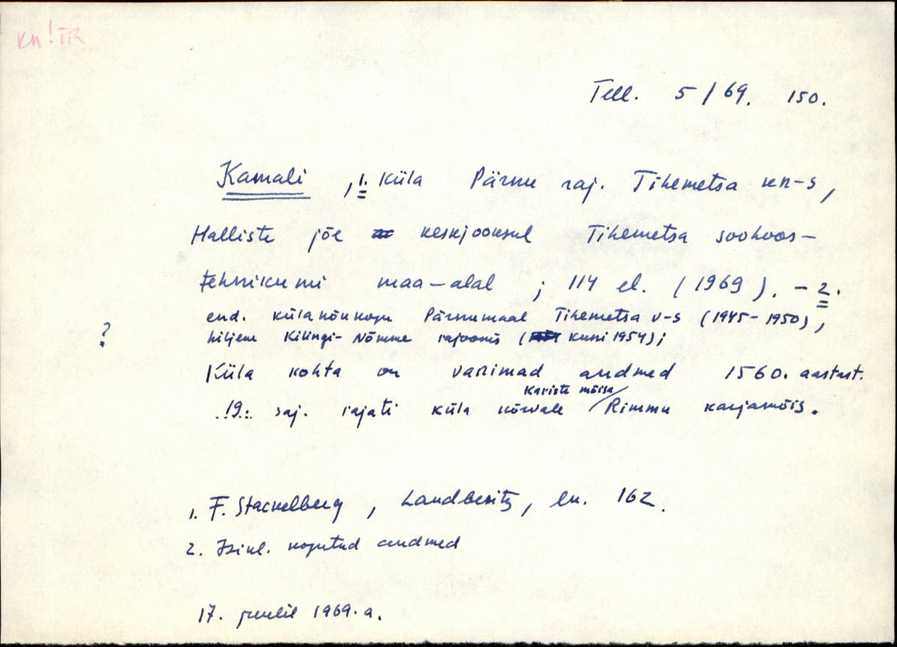 kn! TR
Tell. 5/69. 150.
Kamali, 1. küla Pärnu raj. Tihemetsa kn-s,
Halliste jõe keskjooksul Tihemetsa soohoos-
tehnikumi maa-alal; 114 el. (1969). - 2.
end. külanõukogu Pärnumaal Tihemetsa v-s (1945-1950),
?
hiljem Kilingi-Nõmme rajoonis (kuni 1954);
Küla kohta on vanimad andmed 1560. aastast.
Kariste mõisa
19. saj. rajati küla kõrvale Rimmu karjamõis.
1. F. Stackelberg, Landbesitz, lk. 162.
2. Isikl. kogutud andmed
17. juulil 1969. a.